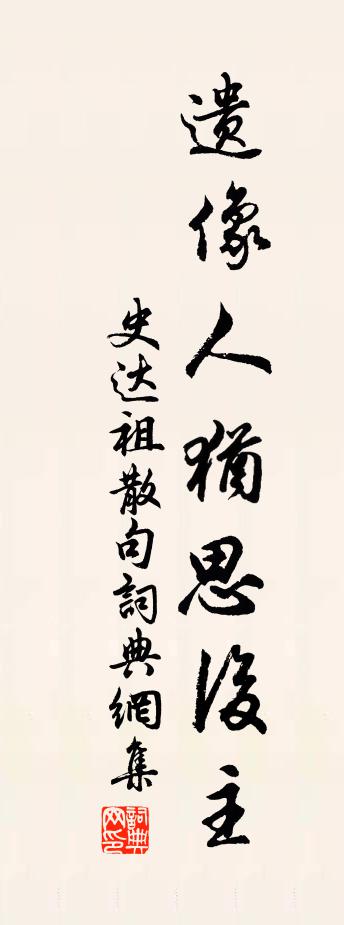 遺像人猶思後主
史达祖散句詞典網集
詞典網印